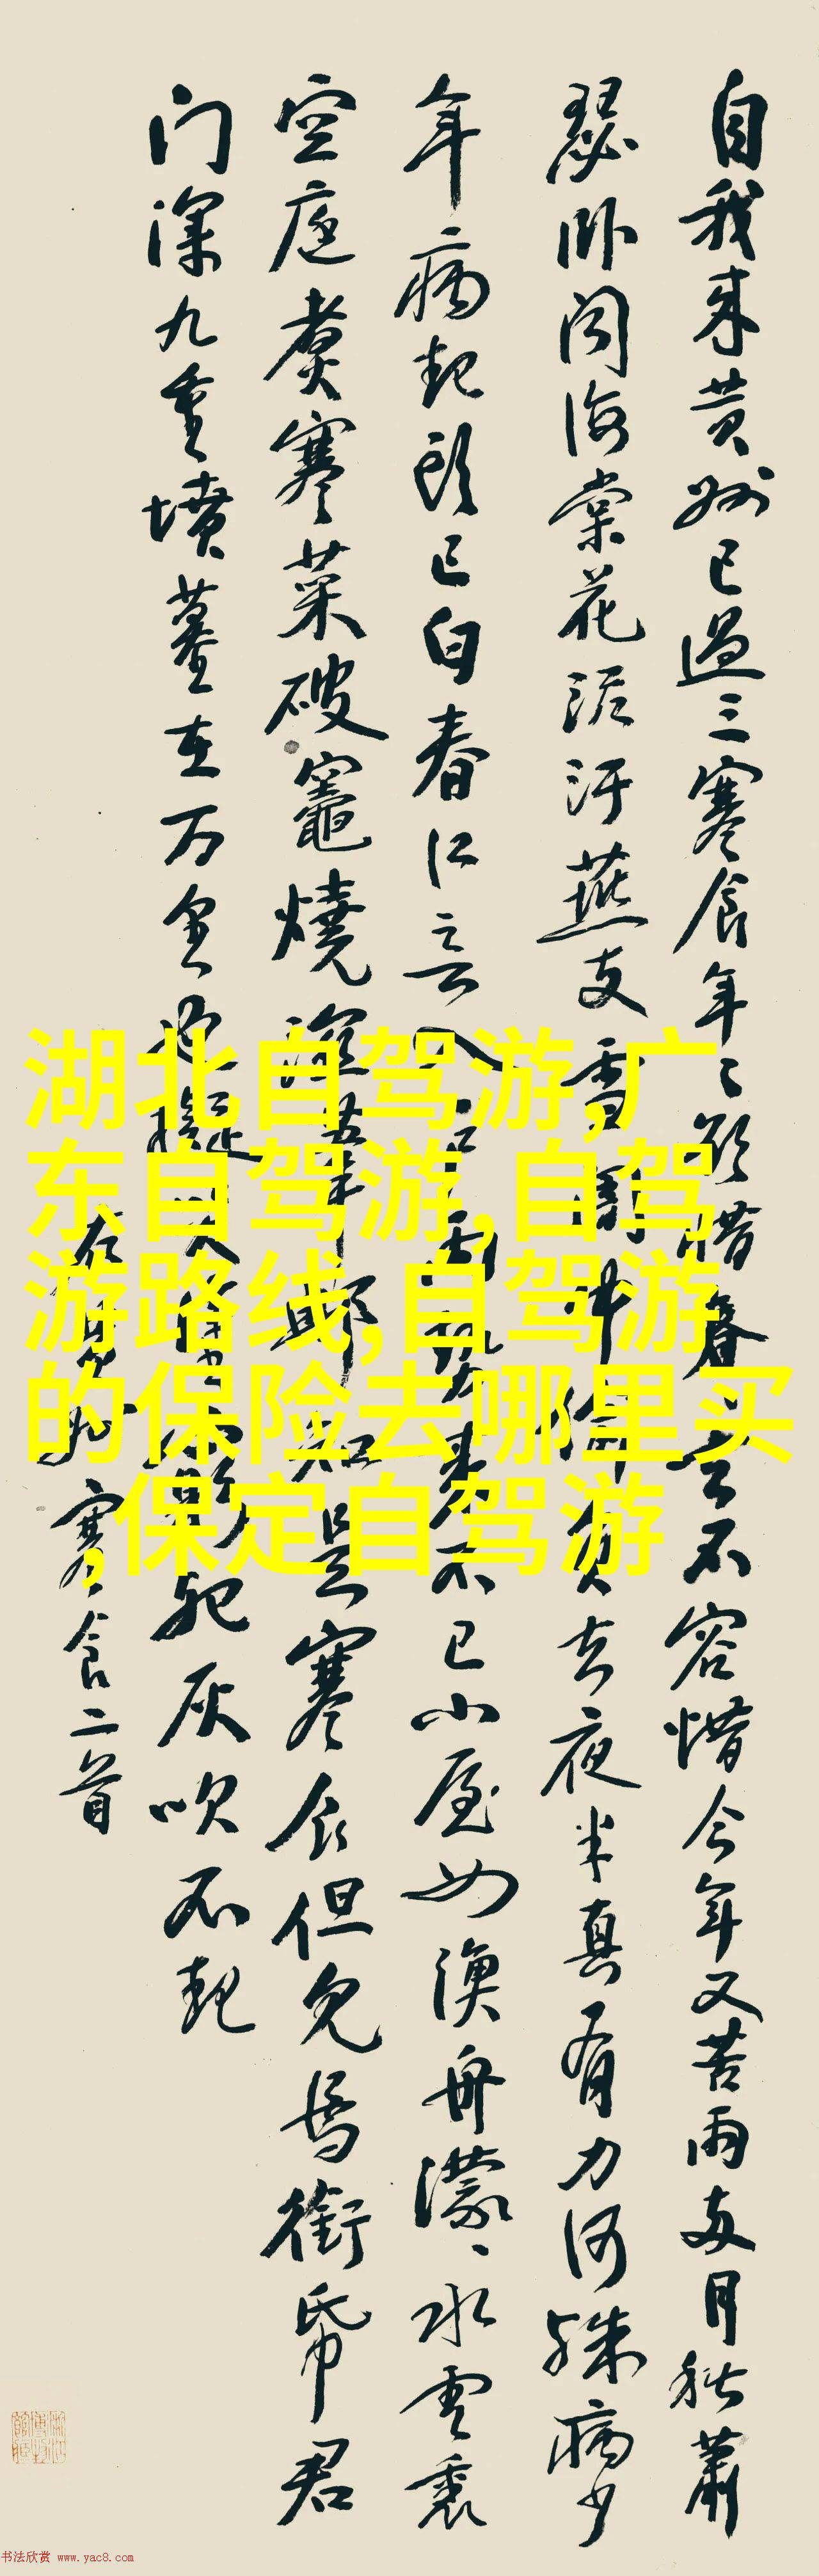 自我来黄州已過三寒食年々欲惜春春去不容惜今年又苦雨两月秋蕭
瑟卧闻海棠花泥污燕支雪闇中偷负去夜半真有力何殊病少
年病起頭已白春江入户雨势来不已小屋如漁舟濛々水雲裏
空庖煮寒菜破竈燒湿葦那知是寒食但見烏銜帋君
门深九重墳墓在万里也拟哭途窮死灰吹不起
右黄州寒食二首
湖北自驾游,广
东自驾游,自驾
游路线,自驾游
的保险去哪里买
,保定自驾游
书法欣赏 www.yac8.com